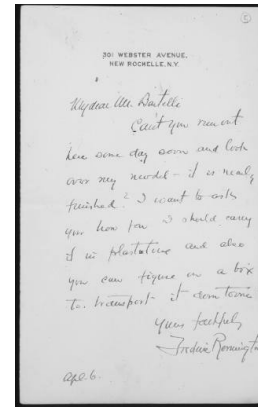 5
301 WEBSTER AVENUE,
NEW ROCHELLE, N.Y.
My dear Mr.
Can't you run out
here some day soon and look
over my model - it is nearly
finished? I want to ask
you how far I should carry
it in plastaline and also
you can figure on a box
to transport it down town
Yours faithfully
Frederic Remington
Apl. 6.